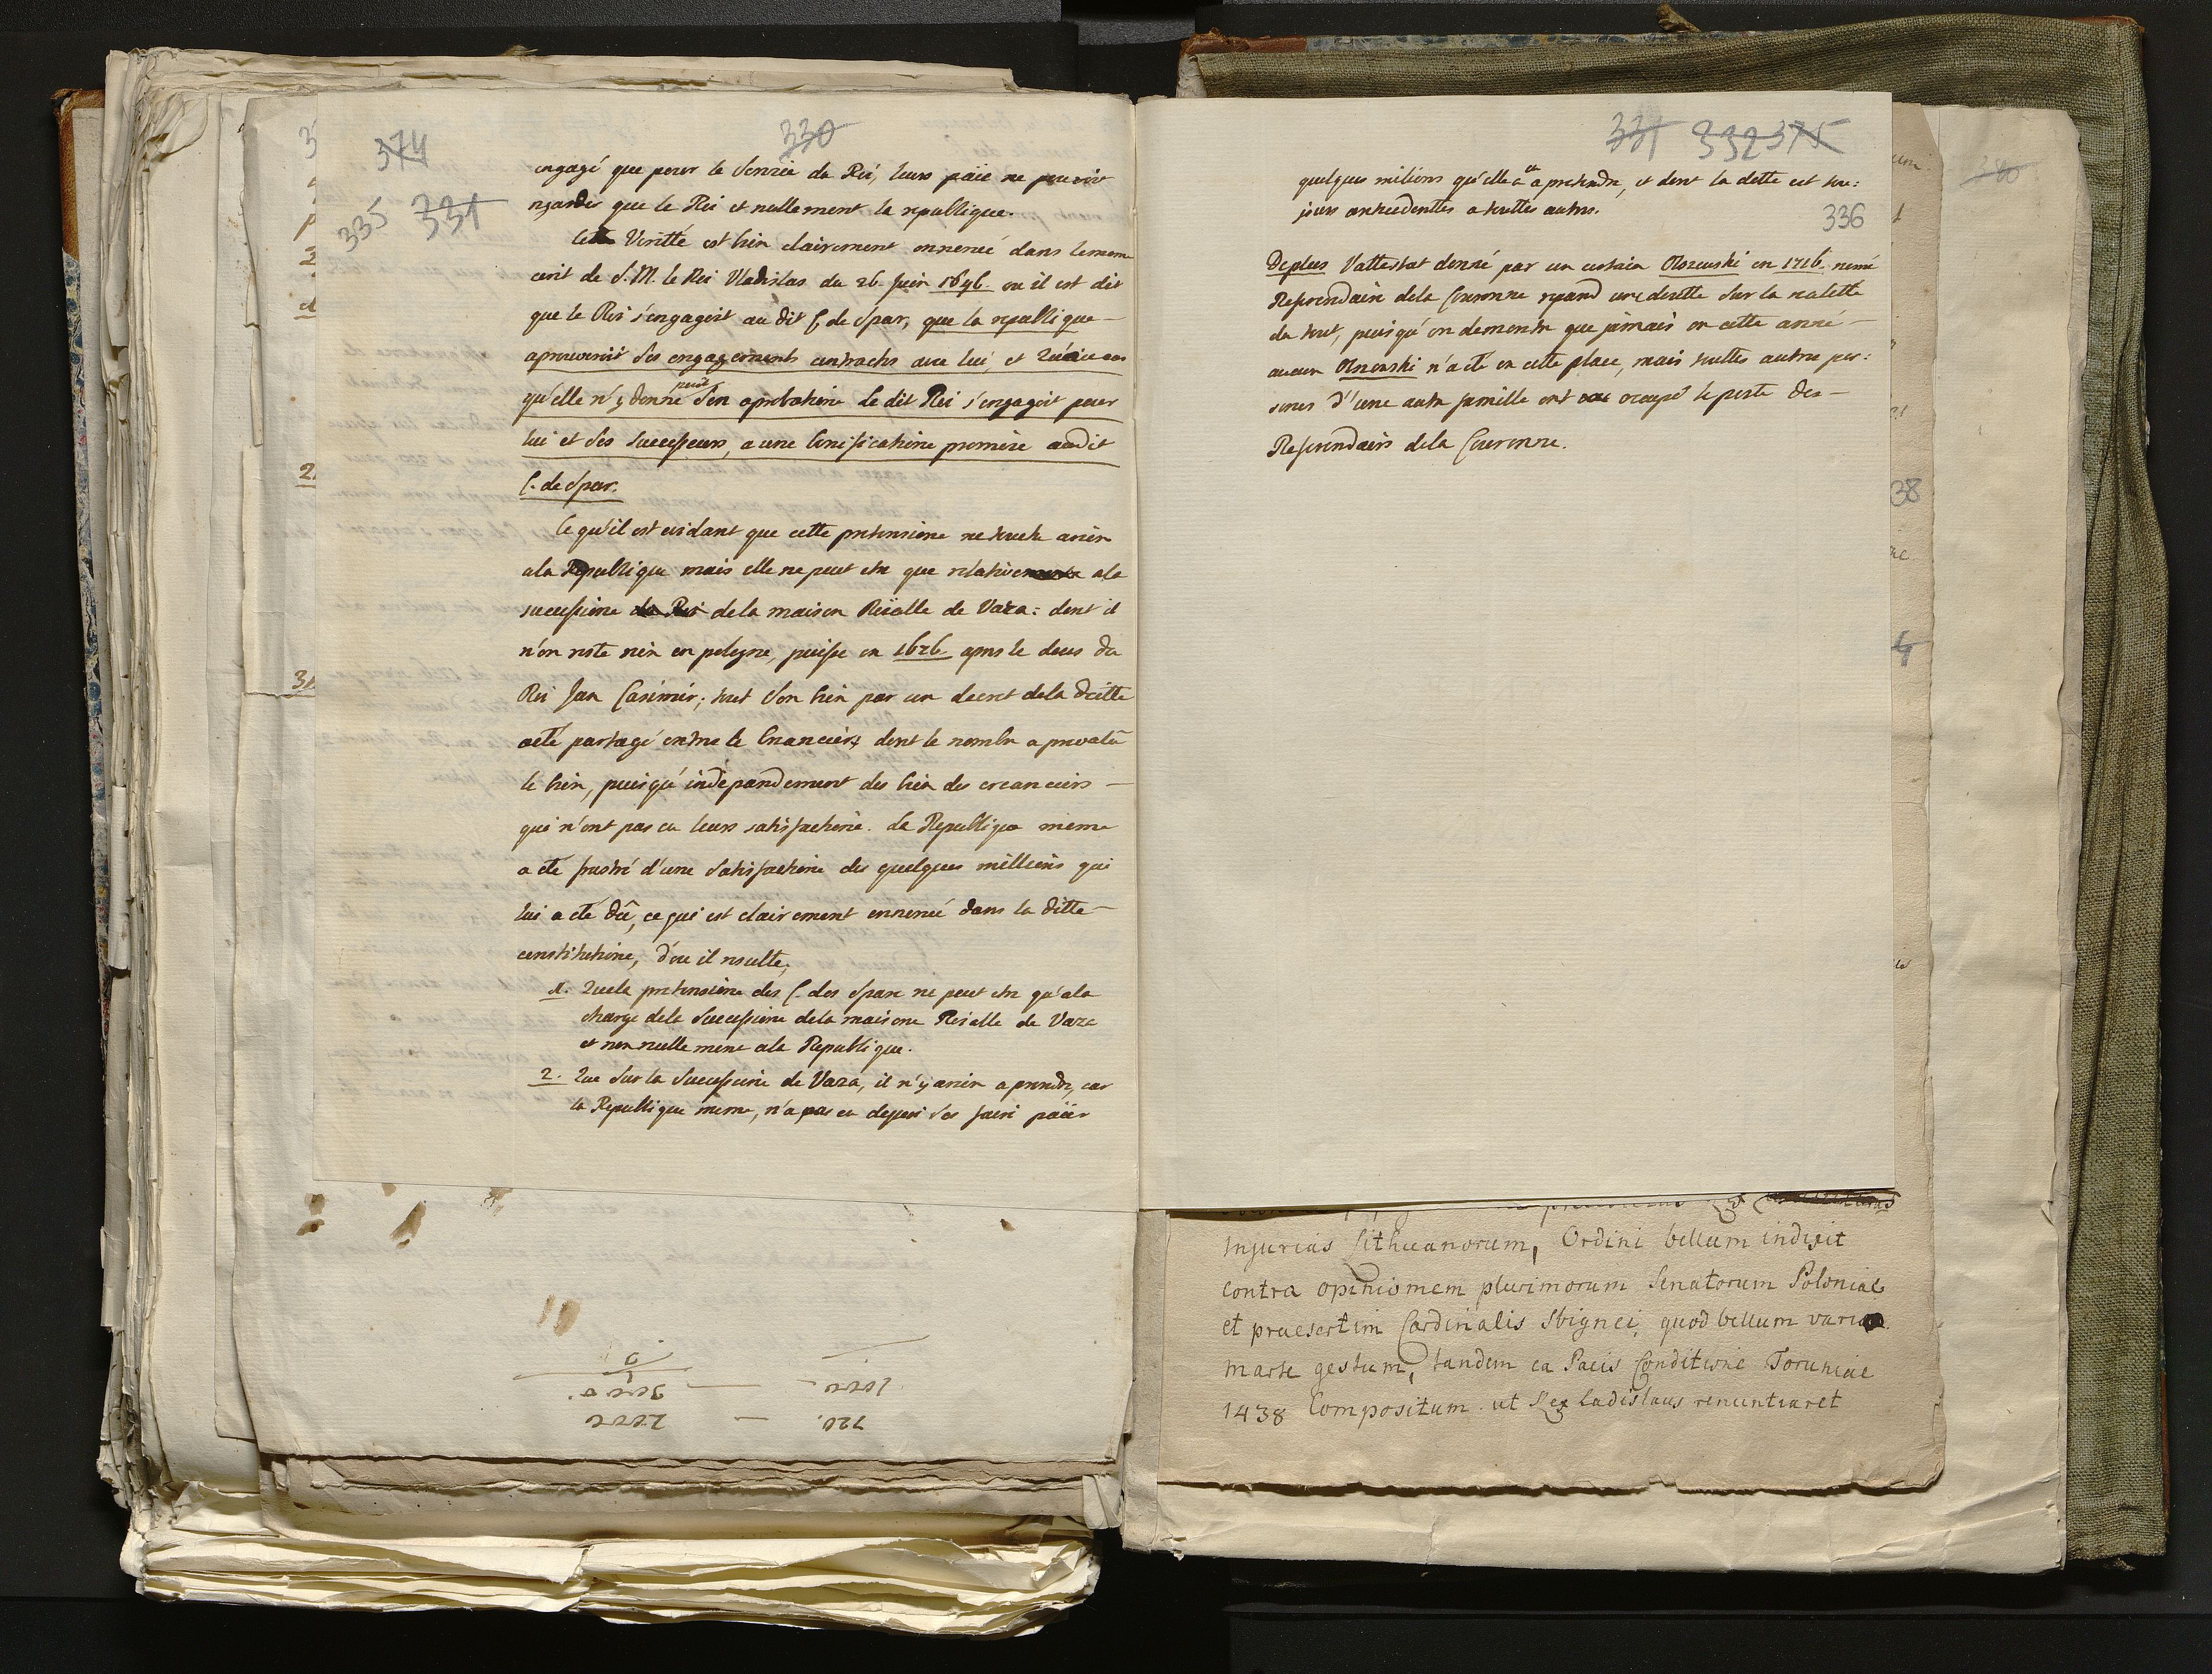 374
330
335 331
engagé que pour le Service du Roi, leurs païe ne pouvoit
regarder que le Roi et nullement la republique.
Cette Veritté est bien clairement ennencé dans lemem
cerit de S. M. le Roi Vladislas du 26 Juin 1646 ou il est dit
que le Roi s'engagoit au dit C. de Spar, que la republique
aprouveroit Ses engagements contractes avec lui, et
qu'elle n'y donne point Son aprobatione Le dit Roi s'engagoit pour
lui et Ses Successeurs, a une bonificatione audit
C. de Spar.
Ce qu'il est evidant que cette pretensione ne touche arien
ala Republique mais elle ne peut etre que relative ala
successione du Roi dela maison Roïalle de Vaza: dont il
n'en reste rien en pologne, puisque en 1676 apres le deces du
Roi Jan Casimir; tout Son bien par un decret dela diette
aeté partagé entre le Creanciers dont le nombre a prevalu
le bien, puisqu'independement des bien des creanciers
qui n'ont pas eu leurs satisfactione. La Republique meme
a eté frustré d'une Satisfactione des quelques millions qui
lui a eté dû, ce qui est clairement ennencé dans la ditte
constitutione, d'ou il resulte;
1. Quela pretensione des C. des Spare ne peut etre qu'ala
charge dela Successione dela maisone Roialle de Vaza
et non nullement ala Republique.
2. Que Sur la Successione de Vaza, il n'y arien a prendre, car
la Republique meme, n'a pas eu dequoi Ses faire païer
720. — 2000
1000 — 3000.
331 332 375
336
quelques milions qu'elle a eu apretendre, et dont la dette est tou:
jours antecedentes a touttes autres.
Deplus l'attestat donné par un certain Olszewski en 1716 nomé
Referendaire dela Couronne repand une doutte Sur la realitté
du tout, puisqu'on demontre que jamais en cette anné
aucun Olszewski n'a eté en cette place, mais touttes autre per:
sones d'une autre famille ont ocupé le poste des
Referendairs dela Couronne.
380
38
4
Injurias Lithuanorum, Ordini bellum indixit
contra opinionem plurimorum Senatorum Poloniae
et praesertim Cardinalis Sbignei, quod bellum vario
marte gestum, tandem ea Pacis Conditione Toruniae
1438 Compositum. ut Rex Ladislaus renuntiaret